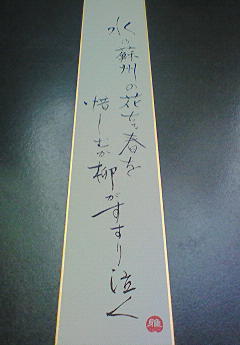 水の蘇州の花ちる春を
惜しむか柳がすすり泣く